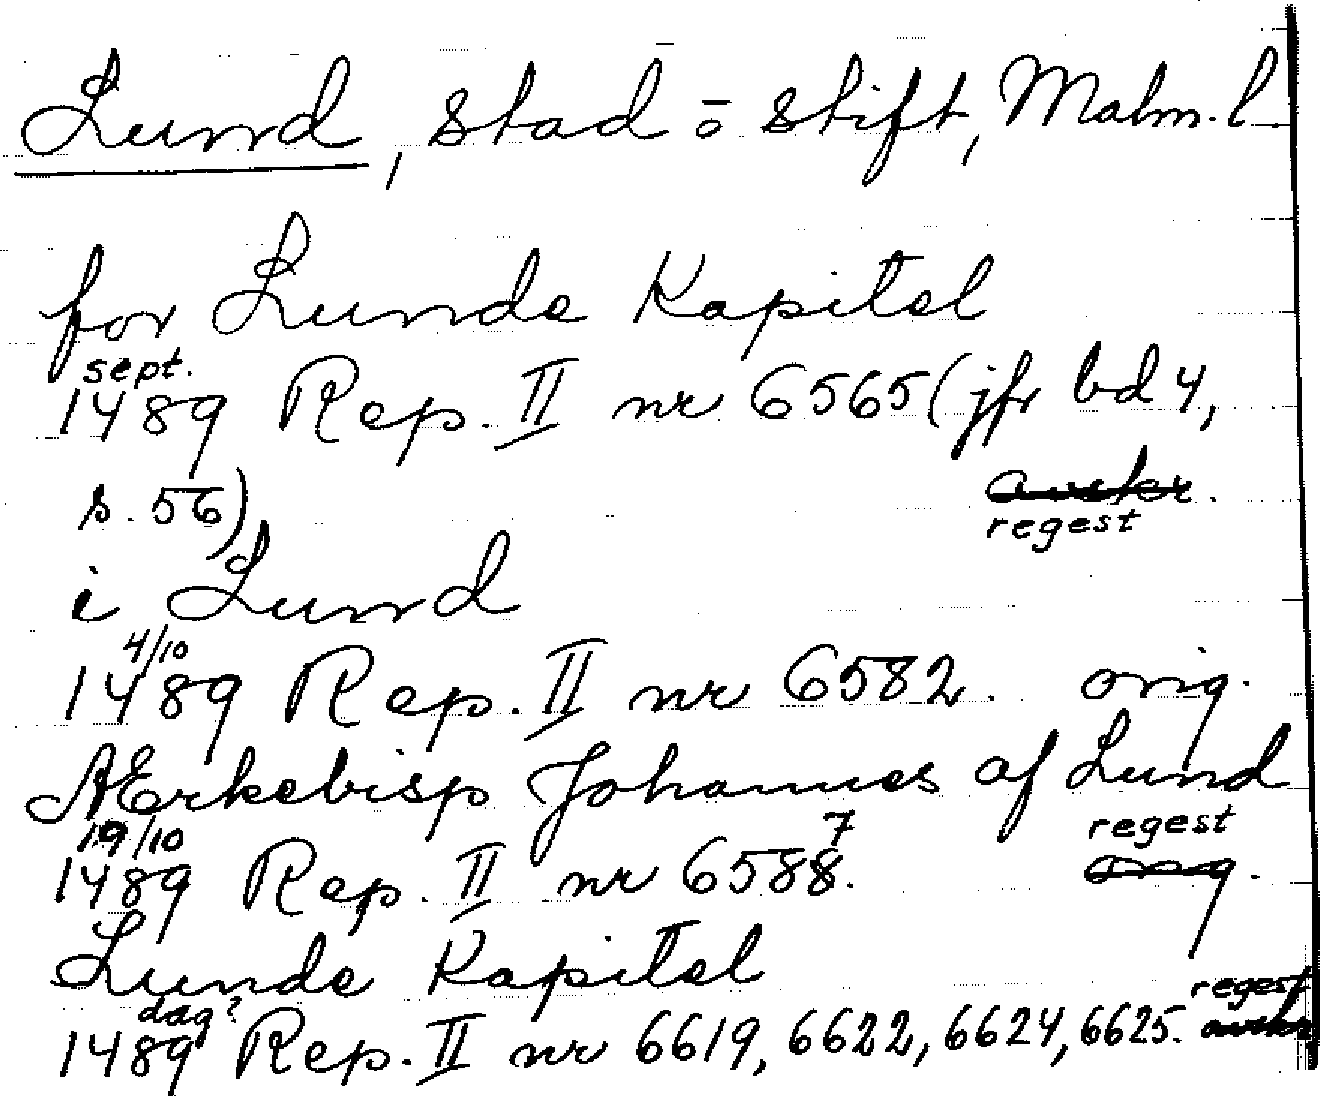 Lund, stad o stift, Malm. l
for Lunde Kapitel
sept.
1489 Rep. II nr 6565 (jfr bd 4,
s. 56) avskr.
regest
i Lund
4/10
1489 Rep. II nr 6582. orig.
AErkebisp Johannes af Lund
19/10 7 regest
1489 Rep. II nr 6588. orig.
Lunde Kapitel
dag? regest
1489 Rep. II nr 6619, 6622, 6624, 6625. avskr